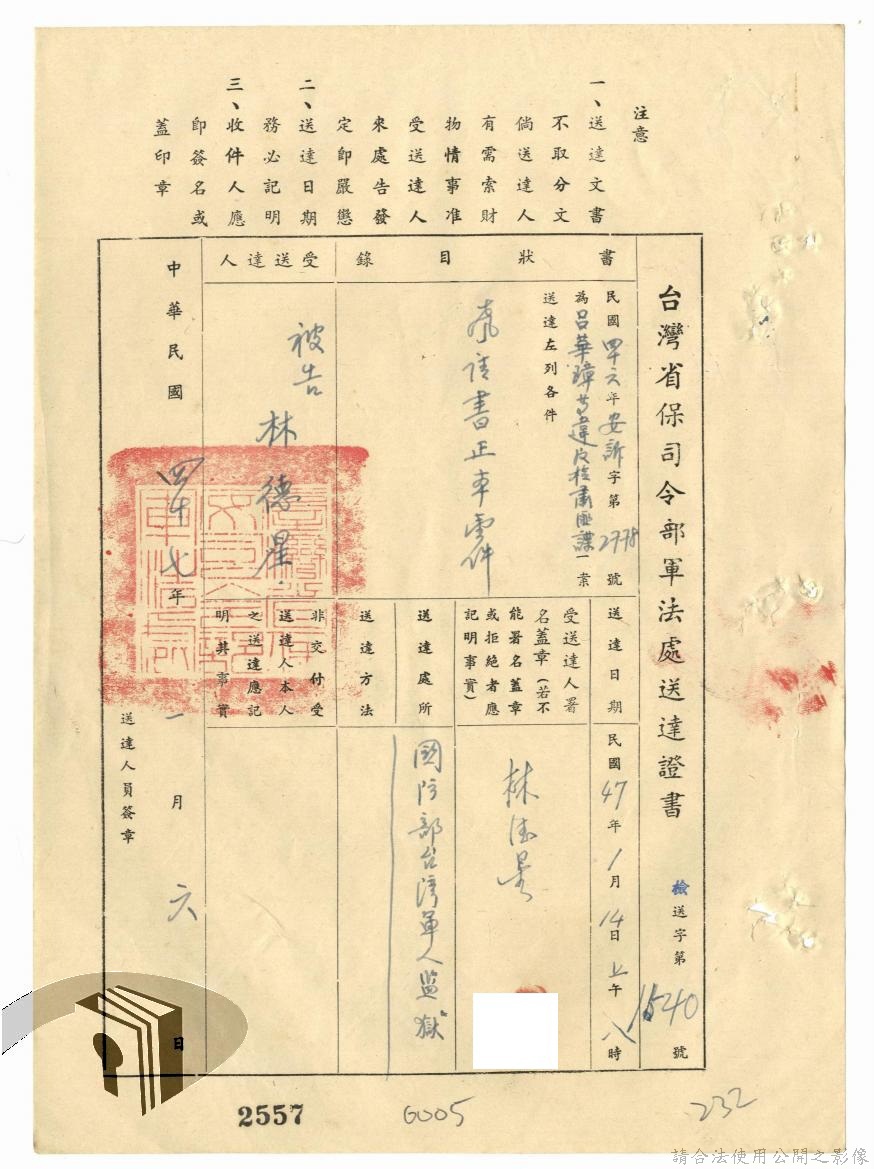 注意
一、送達文書
不取分文
倘送達人
有需索財
物情事准
受送達人
來處告發
定即嚴懲
二、送達日期
務必記明
三、收件人應
即簽名或
蓋印章
台灣省保司令部軍法處送達證書
檢送字第1540號
書狀目錄
民國四十六年安訴字第2778號
為呂華璋等違反檢肅匪諜一案
送達左列各件
書正本壹件
受送達人
被告 林德星
送達日期
民國47年1月14日上午八時
受送達人署
名蓋章(若不
能署名蓋章
或拒絕者應
記明事實)
林德星
送達處所
國防部台灣軍人監獄
送達方法
非交付受
送達人本人
之送達應記
明其事實
中華民國四十七年一月六日
送達人員簽章
2557
6005
232
請合法使用公開之影像